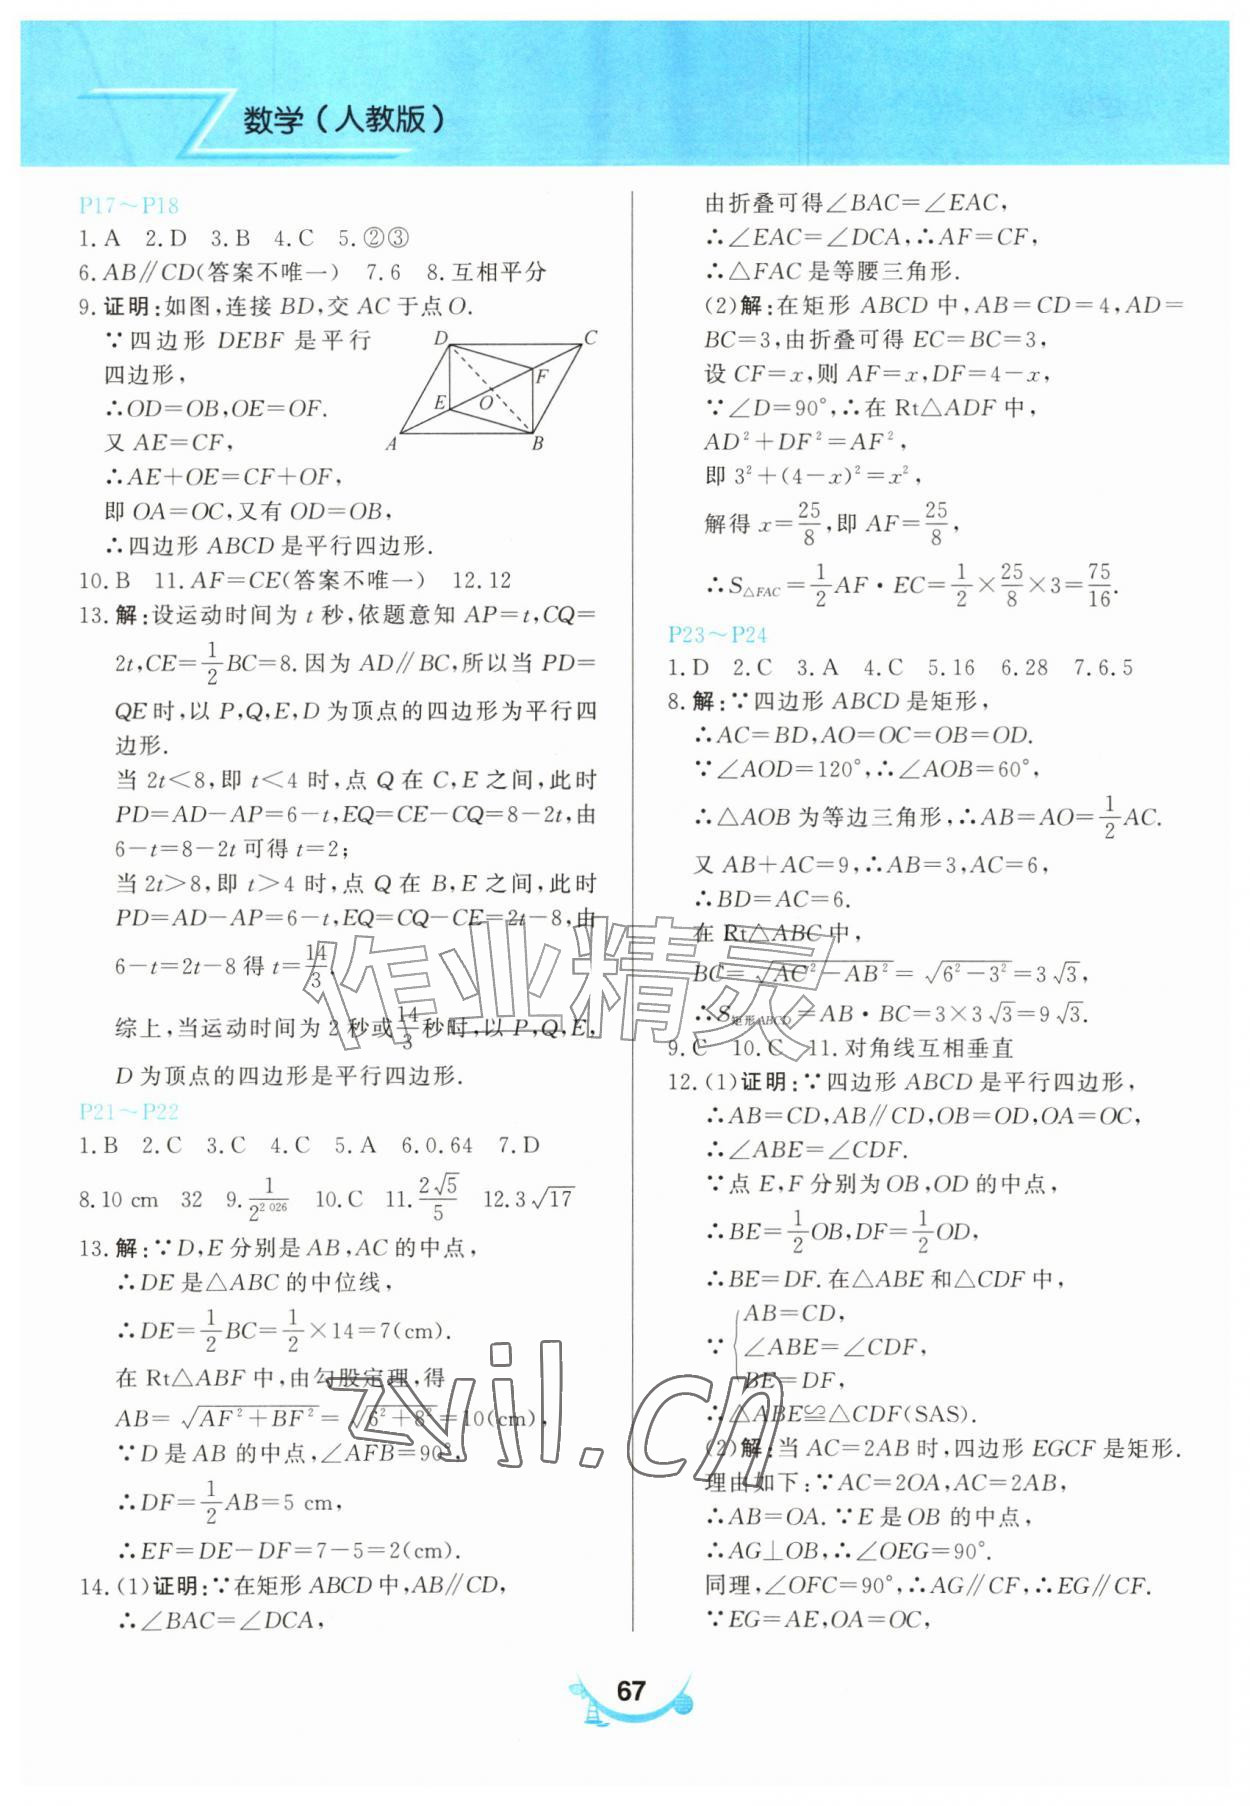 数学(人教版)
P17～P18
1.A 2.D 3.B 4.C 5.②③
6.AB∥CD(答案不唯一) 7.6 8.互相平分
9.证明:如图,连接BD,交AC于点O.
∵四边形DEBF是平行
四边形,
∴OD=OB,OE=OF.
又AE=CF,
∴AE+OE=CF+OF,
即OA=OC,又有OD=OB,
∴四边形ABCD是平行四边形.
D C F E O A B
10.B 11.AF=CE(答案不唯一) 12.12
13.解:设运动时间为t秒,依题意知AP=t,CQ=
2t,CE=1/2BC=8.因为AD∥BC,所以当PD=
QE时,以P,Q,E,D为顶点的四边形为平行四
边形.
当2t<8,即t<4时,点Q在C,E之间,此时
PD=AD-AP=6-t,EQ=CE-CQ=8-2t,由
6-t=8-2t可得t=2;
当2t>8,即t>4时,点Q在B,E之间,此时
PD=AD-AP=6-t,EQ=CQ-CE=2t-8,由
6-t=2t-8得t=14/3.
综上,当运动时间为2秒或14/3秒时,以P,Q,E,
D为顶点的四边形是平行四边形.
P21～P22
1.B 2.C 3.C 4.C 5.A 6.0.64 7.D
8.10 cm 32 9.1/2^2 026 10.C 11.2√5/5 12.3√17
13.解:∵D,E分别是AB,AC的中点,
∴DE是△ABC的中位线,
∴DE=1/2BC=1/2×14=7(cm).
在Rt△ABF中,由勾股定理,得
AB=√(AF²+BF²)=√(6²+8²)=10(cm),
∵D是AB的中点,∠AFB=90°,
∴DF=1/2AB=5 cm,
∴EF=DE-DF=7-5=2(cm).
14.(1)证明:∵在矩形ABCD中,AB∥CD,
∴∠BAC=∠DCA,
由折叠可得∠BAC=∠EAC,
∴∠EAC=∠DCA,∴AF=CF,
∴△FAC是等腰三角形.
(2)解:在矩形ABCD中,AB=CD=4,AD=
BC=3,由折叠可得EC=BC=3,
设CF=x,则AF=x,DF=4-x,
∵∠D=90°,∴在Rt△ADF中,
AD²+DF²=AF²,
即3²+(4-x)²=x²,
解得x=25/8,即AF=25/8,
∴S△FAC=1/2AF·EC=1/2×25/8×3=75/16.
P23～P24
1.D 2.C 3.A 4.C 5.16 6.28 7.6.5
8.解:∵四边形ABCD是矩形,
∴AC=BD,AO=OC=OB=OD.
∵∠AOD=120°,∴∠AOB=60°,
∴△AOB为等边三角形,∴AB=AO=1/2AC.
又AB+AC=9,∴AB=3,AC=6,
∴BD=AC=6.
在Rt△ABC中,
BC=√(AC²-AB²)=√(6²-3²)=3√3,
∴S矩形ABCD=AB·BC=3×3√3=9√3.
9.C 10.C 11.对角线互相垂直
12.(1)证明:∵四边形ABCD是平行四边形,
∴AB=CD,AB∥CD,OB=OD,OA=OC,
∴∠ABE=∠CDF.
∵点E,F分别为OB,OD的中点,
∴BE=1/2OB,DF=1/2OD,
∴BE=DF.在△ABE和△CDF中,
AB=CD,
∵{∠ABE=∠CDF,
BE=DF,
∴△ABE≌△CDF(SAS).
(2)解:当AC=2AB时,四边形EGCF是矩形.
理由如下:∵AC=2OA,AC=2AB,
∴AB=OA.∵E是OB的中点,
∴AG⊥OB,∴∠OEG=90°.
同理,∠OFC=90°,∴AG∥CF,∴EG∥CF.
∵EG=AE,OA=OC,
作业精灵
zvil.cn
67